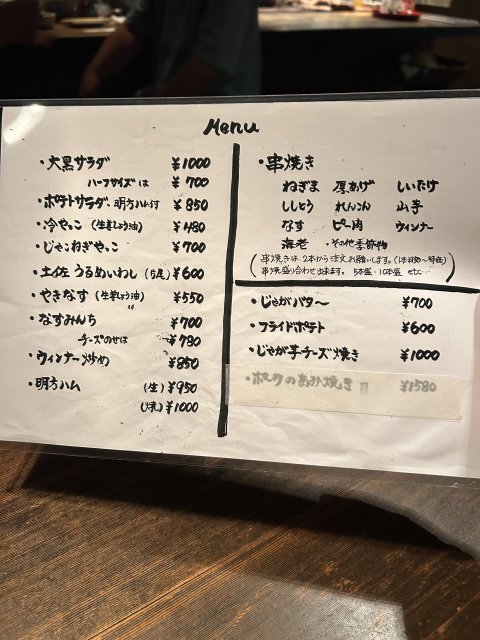 Menu
・大黒サラダ ¥1000
ハーフサイズは ¥700
・ポテトサラダ 明方ハム付 ¥850
・冷やっこ (生姜しょう油) ¥480
・じゃこねぎやっこ ¥700
・土佐 うるめいわし (5尾) ¥600
・やきなす (生姜しょう油) ¥550
・なすみんち ¥700
チーズのせは ¥780
・ウィンナー炒め ¥850
・明方ハム (生) ¥950
(焼) ¥1000
・串焼き
ねぎま 厚あげ しいたけ
ししとう れんこん 山芋
なす ピー肉 ウィンナー
海老 ・その他季節物
(串焼きは、2本から注文お願いします。
串焼き盛り合わせ出来ます。 5本盛・10本盛 etc…)
・じゃがバター ¥700
・フライドポテト ¥600
・じゃが芋チーズ焼き ¥1000
・ポークのあみ焼き ¥1580